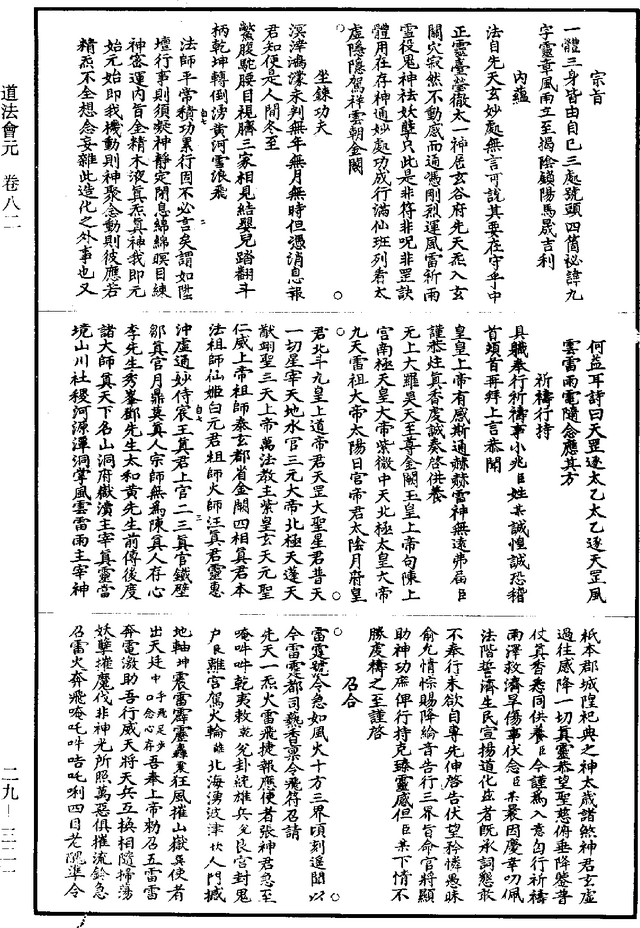 宗旨
一體三身皆由自己三處號頭四箇祕諱九
字靈章風雨立至揭陰鎖陽馬晟吉利
內蘊
法自先天玄妙處無言可說其要在守乎中
正靈臺瑩徹太一神居玄谷府先天炁入玄
關穴寂然不動感而通憑剛烈運風雷祈雨
靈役鬼神祛妖孽只此是非符非呪非罡訣
體用在存神通妙處功成行滿仙班列看太
虛隱隱駕祥雲朝金闕
坐鍊功夫
溟涬鴻濛未判無年無月無時但憑消息報
君知便是人間冬至
鱉腹駝腰目視臍三家相見結嬰兒踏翻斗
柄乾坤轉倒湧黃河雪浪飛
法師平常積功累行固不必言矣謂如陞
壇行事則須凝神靜定閉息綿綿瞑目鍊
神密運內旨全精木液真炁真神我即元
始元始即我機動則神聚念動則彼應若
精炁不全想念妄雜此造化之外事也又
何益耳詩曰天罡逐太乙太乙逐天罡風
雲雷雨電隨念應其方
祈禱行持
具職奉行祈禱事小兆臣姓某誠惶誠恐稽
首頓首再拜上言恭聞
皇皇上帝有感斯通赫赫雷神無遠弗屆臣
謹恭炷真香虔誠奏啓供養
無上大羅昊天至尊金闕玉皇上帝句陳上
宮南極天皇大帝紫微中天北極太皇大帝
九天雷祖大帝太陽日宮帝君太陰月府皇
君北斗九皇上道帝君天罡大聖星君普天
一切星宰天地水官三元大帝北極天蓬天
猷翊聖三天上帝萬法教主紫皇玄天元聖
仁威上帝祖師泰玄都省金闕四相真君本
法祖師仙姬白元君祖師火師汪真君靈惠
沖虛通妙侍宸王真君上官二三真官鐵壁
鄒真官月鼎莫真人宗師無為陳真人存心
李先生秀峯鄧先生太和黃先生前傳後度
諸大師真天下名山洞府嶽瀆主宰真靈當
境山川社稷河源潭洞掌風雲雷雨主宰神
祇本郡城隍祀典之神太歲諸煞神君玄虛
過往咸降一切真靈恭望聖慈俯垂降鑒普
仗真香悉同供養臣今謹為入意旬行祈禱
雨澤救濟旱傷事伏念臣某叨因慶幸叨佩
法階誓濟生民宣揚道化茲者既承詞懇敢
不奉行未欲自專先伸啓告伏望矜憐愚昧
俞允情悰賜降綸音告行三界旨命官將顯
助神功庶俾行持克臻靈感但臣某下情不
勝虔禱之至謹啓
召合
雷霆號令急如風火十方三界頃刻遙聞以
今雷霆都司爇香稟令飛符召請
先天一炁火雷飛捷報應使者張神君急至
唵吽吽乾夷敕乾兌卦統雄兵兌艮宮封鬼
戶艮離宮駕火輪離北海湧波津坎人門撼
地軸坤震雷霹靂轟巽狂風摧山嶽巽使者
出天廷中手飛足步口念心存吾奉上帝勑召五雷雷
奔電激助吾行威天將天兵互換相隨掃蕩
妖孽摧魔伐非神光所照萬惡俱摧流鈴急
召雷火奔飛唵吒吽咭吒唎四目老翁準令
道法會元　卷八二
二九—三二一